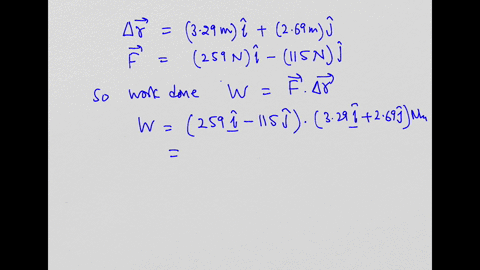 Δr⃗ = (3.29m) î + (2.69m) ĵ
F⃗ = (259 N) î − (115 N) ĵ
So work done W = F⃗ . Δr⃗
W = (259 î − 115 ĵ) . (3.29 î + 2.69 ĵ) Nm
=